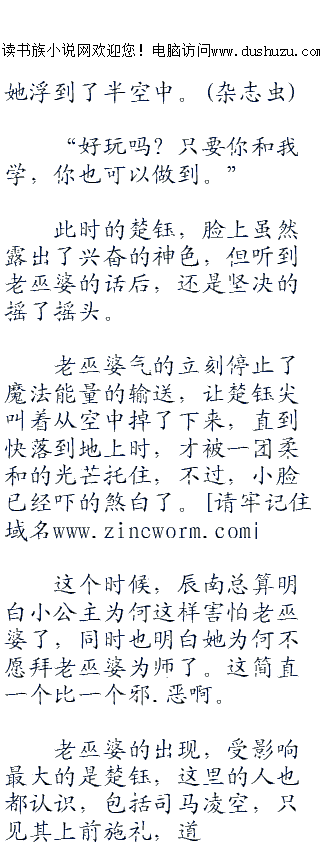 读书族小说网欢迎您！电脑访问www.dushuzu.com
她浮到了半空中。(杂志虫)
“好玩吗？只要你和我
学，你也可以做到。”
此时的楚钰，脸上虽然
露出了兴奋的神色，但听到
老巫婆的话后，还是坚决的
摇了摇头。
老巫婆气的立刻停止了
魔法能量的输送，让楚钰尖
叫着从空中掉了下来，直到
快落到地上时，才被一团柔
和的光芒托住，不过，小脸
已经吓的煞白了。[请牢记住
域名www.zincworm.com¡
这个时候，辰南总算明
白小公主为何这样害怕老巫
婆了，同时也明白她为何不
愿拜老巫婆为师了。这简直
一个比一个邪.恶啊。
老巫婆的出现，受影响
最大的是楚钰，这里的人也
都认识，包括司马凌空，只
见其上前施礼，道